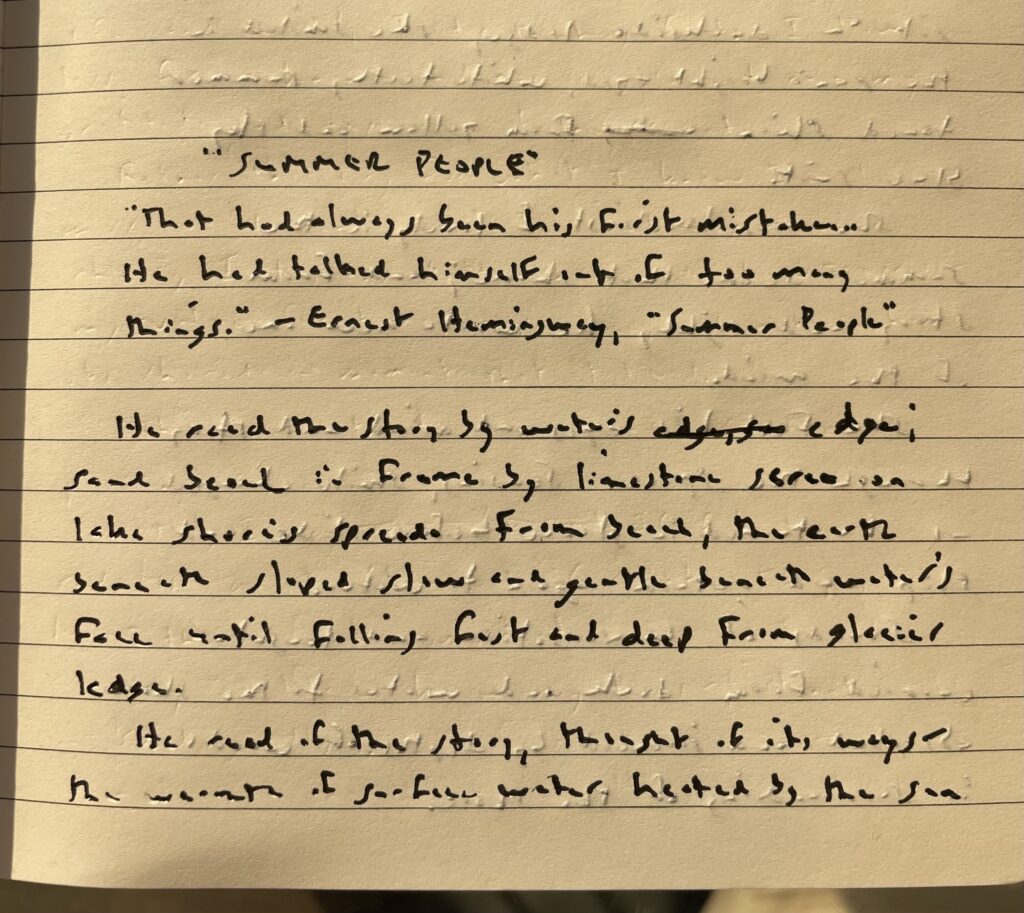 "SUMMER PEOPLE"
"That had always been his first mistake...
He had talked himself out of too many
things." - Ernest Hemingway, "Summer People"
He read the story by water's edge;
sand beach in frame by limestone scree on
lake shore's spread. From beach, the earth
beneath sloped slow and gentle beneath water's
face until falling fast and deep from glacier
ledge.
He read of the story, thought of its ways-
the warmth of surface water heated by the sun